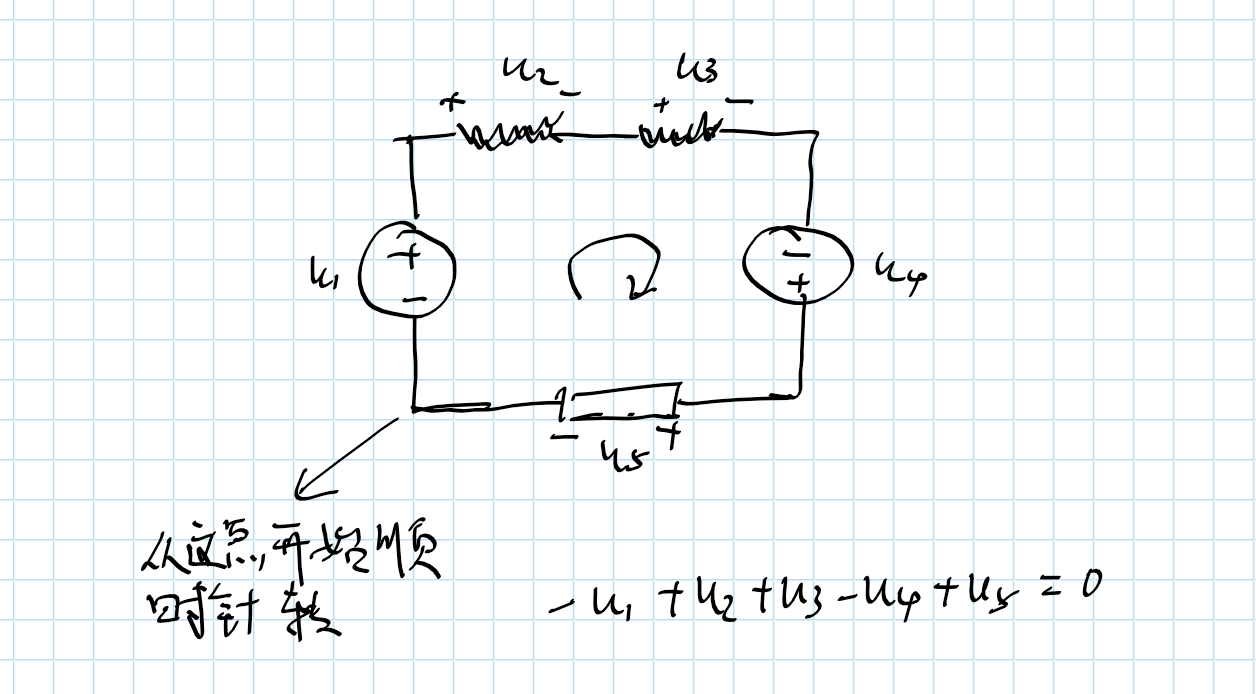 u2
u3
+ − + −
u1
+
−
−
+
u4
− +
u5
从这点开始顺
时针转
-u1+u2+u3-u4+u5=0